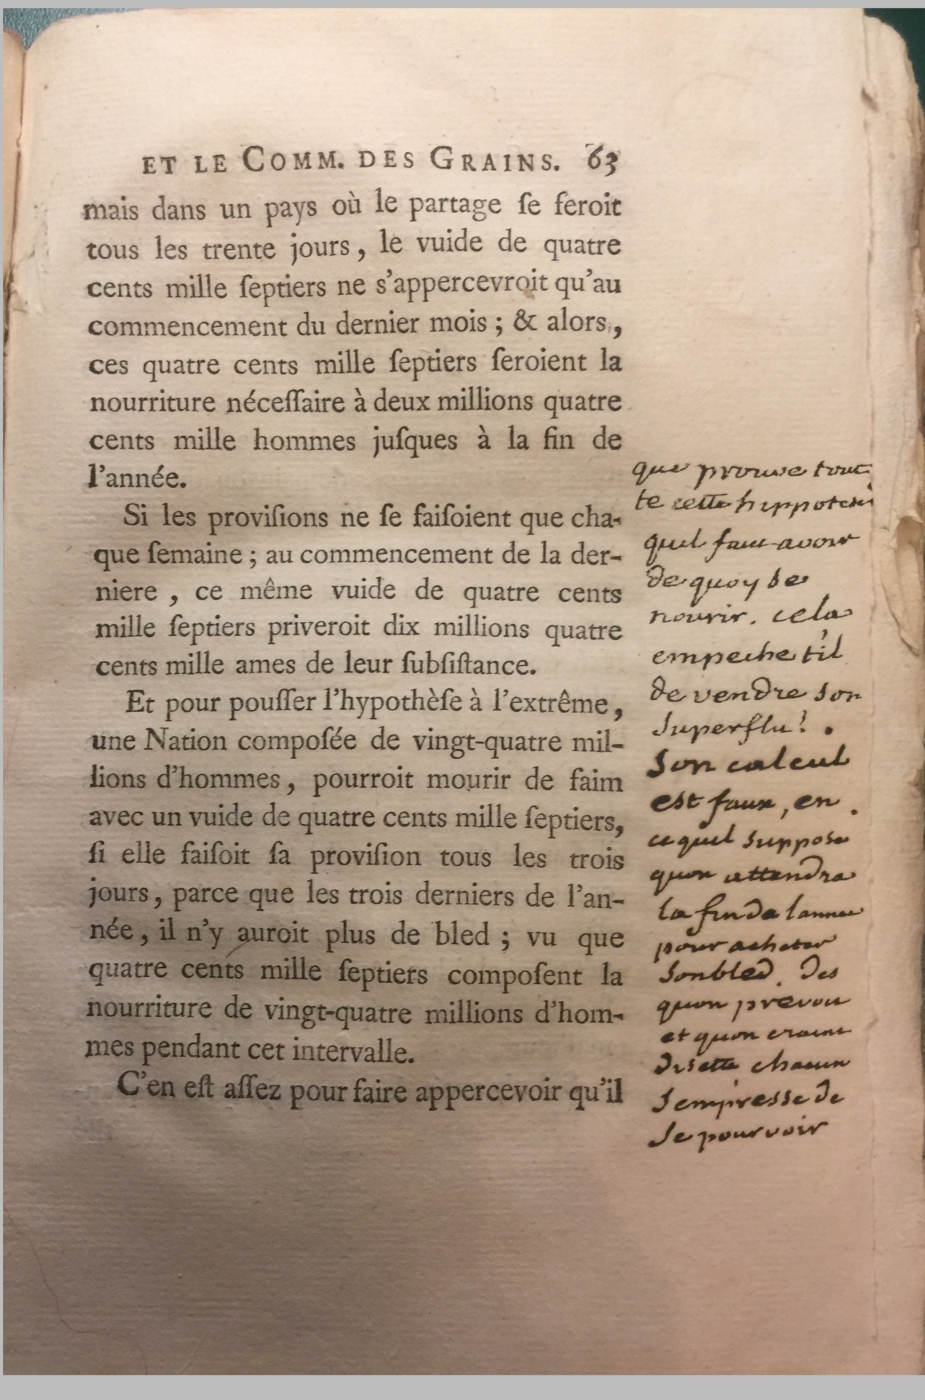 ET LE COMM. DES GRAINS. 63
mais dans un pays où le partage ſe feroit
tous les trente jours, le vuide de quatre
cents mille ſeptiers ne s'appercevroit qu'au
commencement du dernier mois ; & alors,
ces quatre cents mille ſeptiers ſeroient la
nourriture néceſſaire à deux millions quatre
cents mille hommes juſques à la fin de
l'année.
Si les proviſions ne ſe faiſoient que cha-
que ſemaine ; au commencement de la der-
niere , ce même vuide de quatre cents
mille ſeptiers priveroit dix millions quatre
cents mille ames de leur ſubſiſtance.
Et pour pouſſer l'hypothèſe à l'extrême,
une Nation compoſée de vingt-quatre mil-
lions d'hommes, pourroit mourir de faim
avec un vuide de quatre cents mille ſeptiers,
ſi elle faiſoit ſa proviſion tous les trois
jours, parce que les trois derniers de l'an-
née, il n'y auroit plus de bled ; vu que
quatre cents mille ſeptiers compoſent la
nourriture de vingt-quatre millions d'hom-
mes pendant cet intervalle.
C'en eſt aſſez pour faire appercevoir qu'il
que prouve tout
te cette hippotesi
quil faut avoir
de quoy se
nourir. cela
empeche til
de vendre son
superflu! .
Son calcul
est faux, en
ce quil suppose
quon attendra
la fin de lannee
pour acheter
son bled. des
quon prevoit
et quon craint
disette chacun
sempresse de
se pourvoir